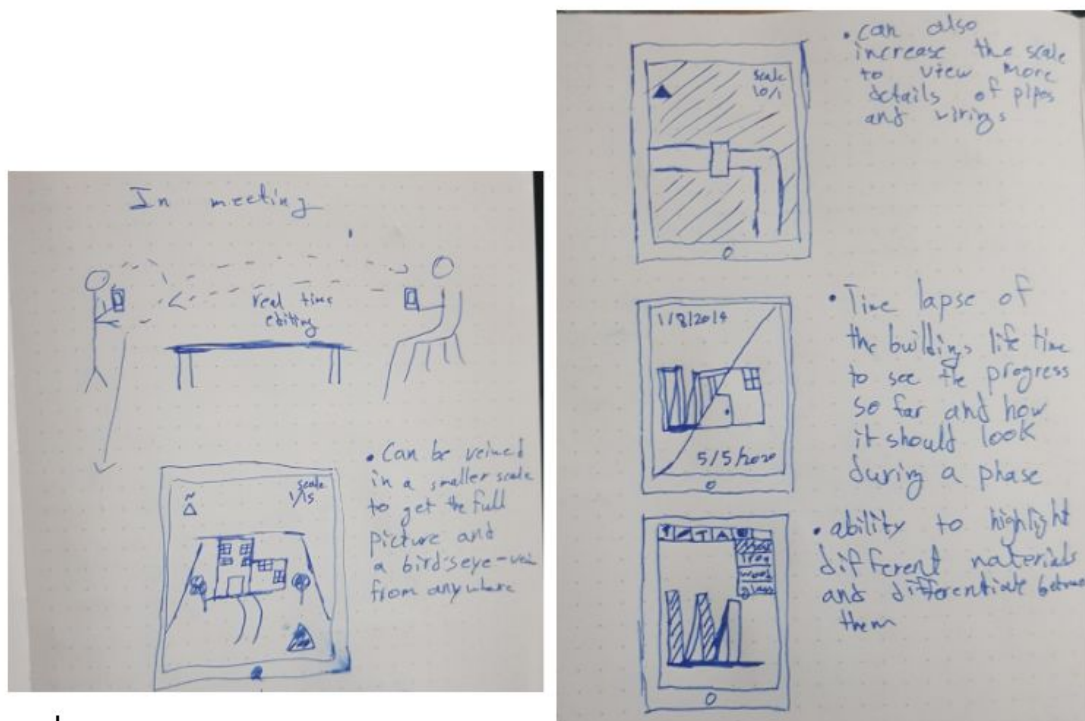 In meeting
real time
editing
• Can be veiwed
in a smaller scale
to get the full
picture and
a birdseye-veiw
from anywhere
scale
1/15
N
• can also
increase the scale
to view more
details of pipes
and wirings
scale
10/1
• Time lapse of
the buildings life time
to see the progress
so far and how
it should look
during a phase
1/8/2019
5/5/2020
• ability to highlight
different materials
and differentiate between
them
T
wood
glass